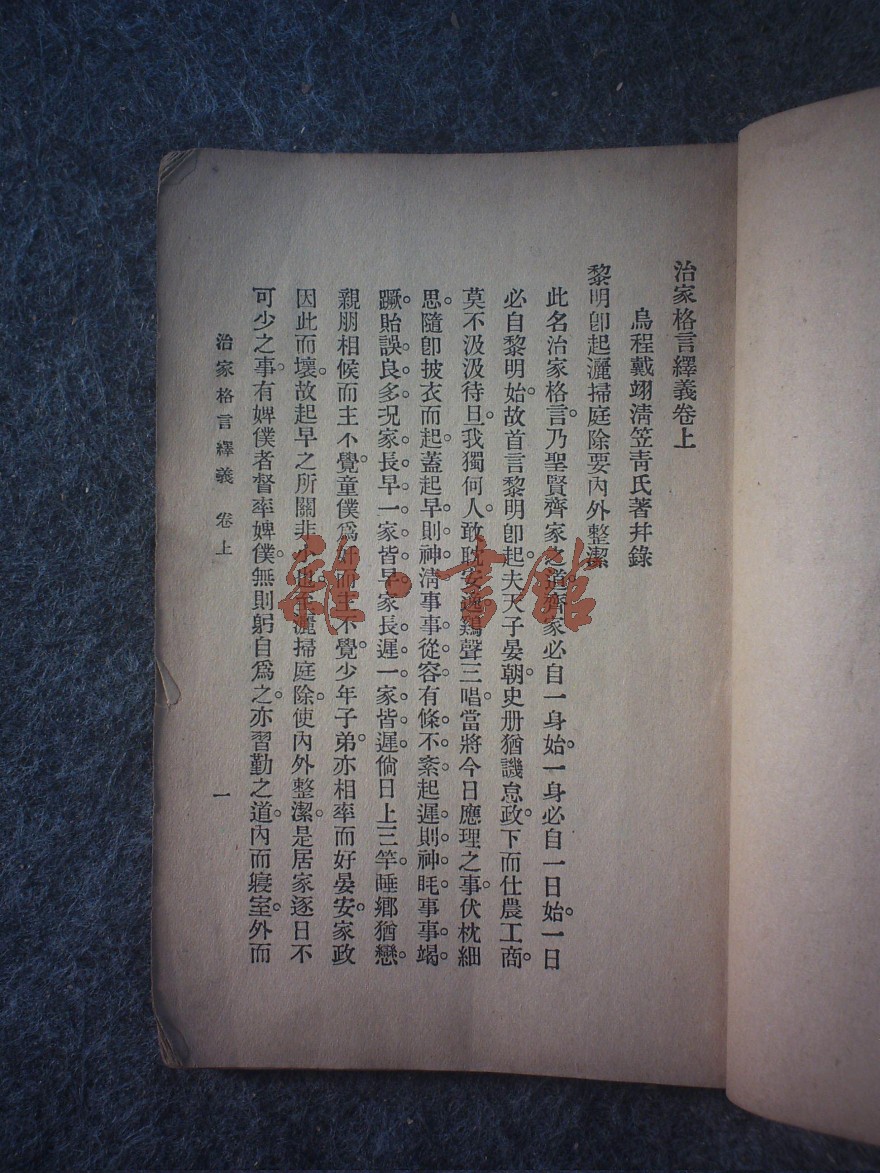 治家格言繹義卷上
烏程戴翊清笠靑氏著幷錄
黎明卽起灑掃庭除要內外整潔
此名治家格言。乃聖賢齊家之道。齊家必自一身始。一身必自一日始。一日
必自黎明始。故首言黎明卽起。夫天子晏朝。史册猶譏怠政。下而仕農工商。
莫不汲汲待旦。我獨何人。敢耽安逸。鷄聲三唱。當將今日應理之事。伏枕細
思。隨卽披衣而起。蓋起早則神淸。事事從容。有條不紊。起遲則神眊。事事竭
蹶。貽誤良多。況家長早。一家皆早。家長遲。一家皆遲。倘日上三竿。睡鄕猶戀。
親朋相候而主不覺。童僕爲奸而主不覺。少年子弟。亦相率而好晏安。家政
因此而壞。故起早之所關非小也。至灑掃庭除。使內外整潔。是居家逐日不
可少之事。有婢僕者督率婢僕。無則躬自爲之。亦習勤之道。內而寢室。外而
治家格言繹義 卷上
一
雜·書館